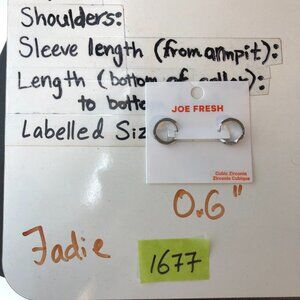 Shoulders:
Sleeve length (from armpit):
Length (bottom of collar):
to botto
Labelled Siz
JOE FRESH
Cubic Zirconia
Zircone Cubique
0.6"
Jadie
1677